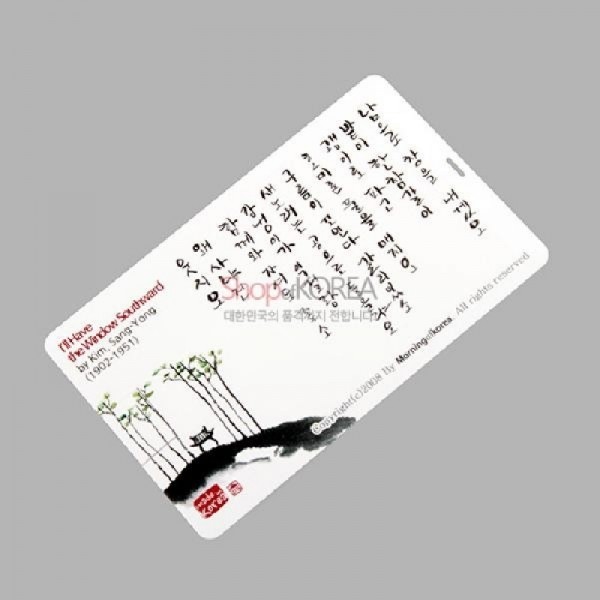 남으로 창을 내겠오
밭이 한참갈이
괭이로 파고
호미론 풀을 매지오
구름이 꼬인다 갈리 있소
새 노래는 공으로
강냉이가 익
함께 와 자셔도 좋소
왜 사
웃지오
I'll Have
the Window Southward
by Kim, Sang-Yong
(1902-1951)
Shop of KOREA
대한민국의 품격까지 전합니다
Copyright(c)2008 By Morning of korea. All rights reserved
Korea